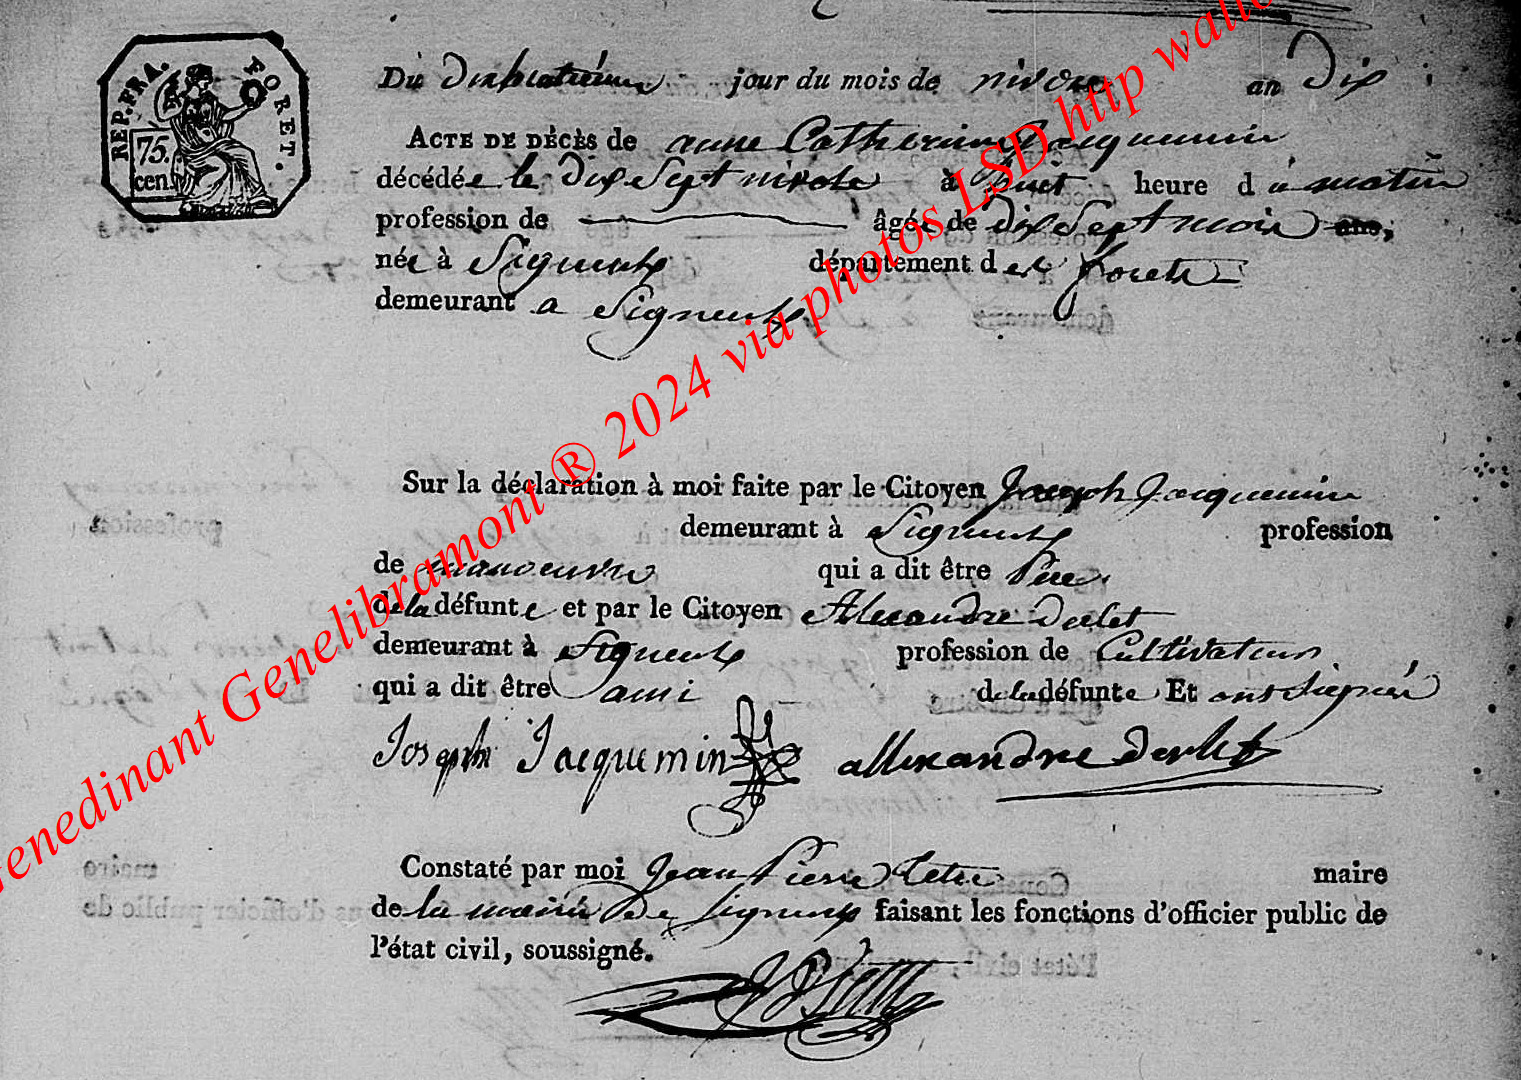 REP. FRA. FORET.
75. cen.
Du dixhuitiéme jour du mois de nivose an dix
ACTE DE DÉCÈS de anne Catherine Jacquemin
décédée le dix Sept nivose à huit heure d u matin
profession de âgée de dix Sept mois ans,
née à Signeulx département d es forets
demeurant a Signeulx
Sur la déclaration à moi faite par le Citoyen Joseph Jacquemin
demeurant à Signeulx profession
de manoeuvre qui a dit être Père
de la défunte et par le Citoyen Alexandre derlet
demeurant à Signeulx profession de Cultivateur
qui a dit être ami de la défunte Et ont Signés
Joseph Jacquemin allexandre derlet
Constaté par moi Jean Pierre maire
de la mairie De Signeulx faisant les fonctions d'officier public de
l'état civil, soussigné.
Genedinant Genelibramont ® 2024 via photos LSD http